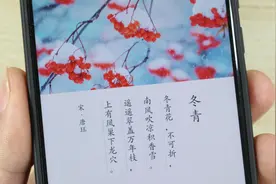 冬青
冬青花，不可折，
南风吹凉积香雪。
遥遥翠盖万年枝，
上有凤巢下龙穴。
宋·唐珏